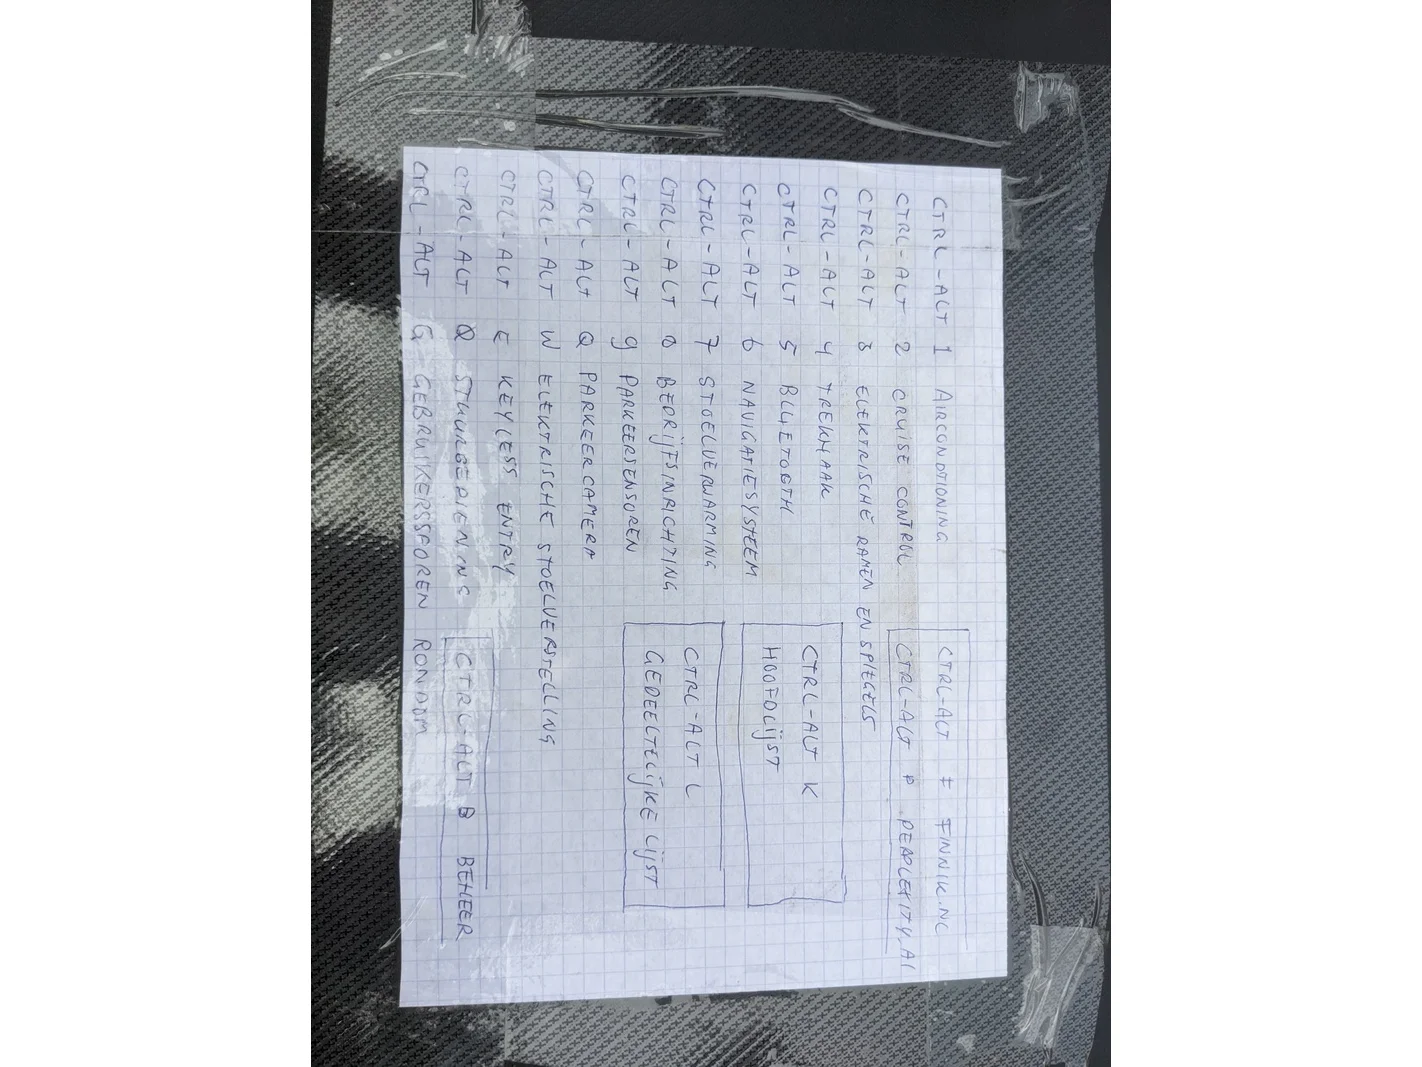 CTRL-ALT 1 AIRCONDTIONING
CTRL-ALT 2 CRUISE CONTROL
CTRL-ALT 3 ELEKTRISCHE RAMEN EN SPIEGELS
CTRL-ALT 4 TREKHAAK
CTRL-ALT 5 BLUETOOTH
CTRL-ALT 6 NAVIGATIESYSTEEM
CTRL-ALT 7 STOELVERWARMING
CTRL-ALT 8 BEDRIJFSINRICHTING
CTRL-ALT 9 PARKEERSENSOREN
CTRL-ALT Q PARKEERCAMERA
CTRL-ALT W ELEKTRISCHE STOELVERSTELLING
CTRL-ALT E KEYLESS ENTRY
CTRL-ALT Q STUURBEDIENING
CTRL-ALT G GEBRUIKERSSPOREN RONDOM
CTRL-ALT F FINNIK.NL
CTRL-ALT P PERPLEXITY.AI
CTRL-ALT K
HOOFDLIJST
CTRL-ALT L
GEDEELTELIJKE LIJST
CTRL-ALT B BEHEER